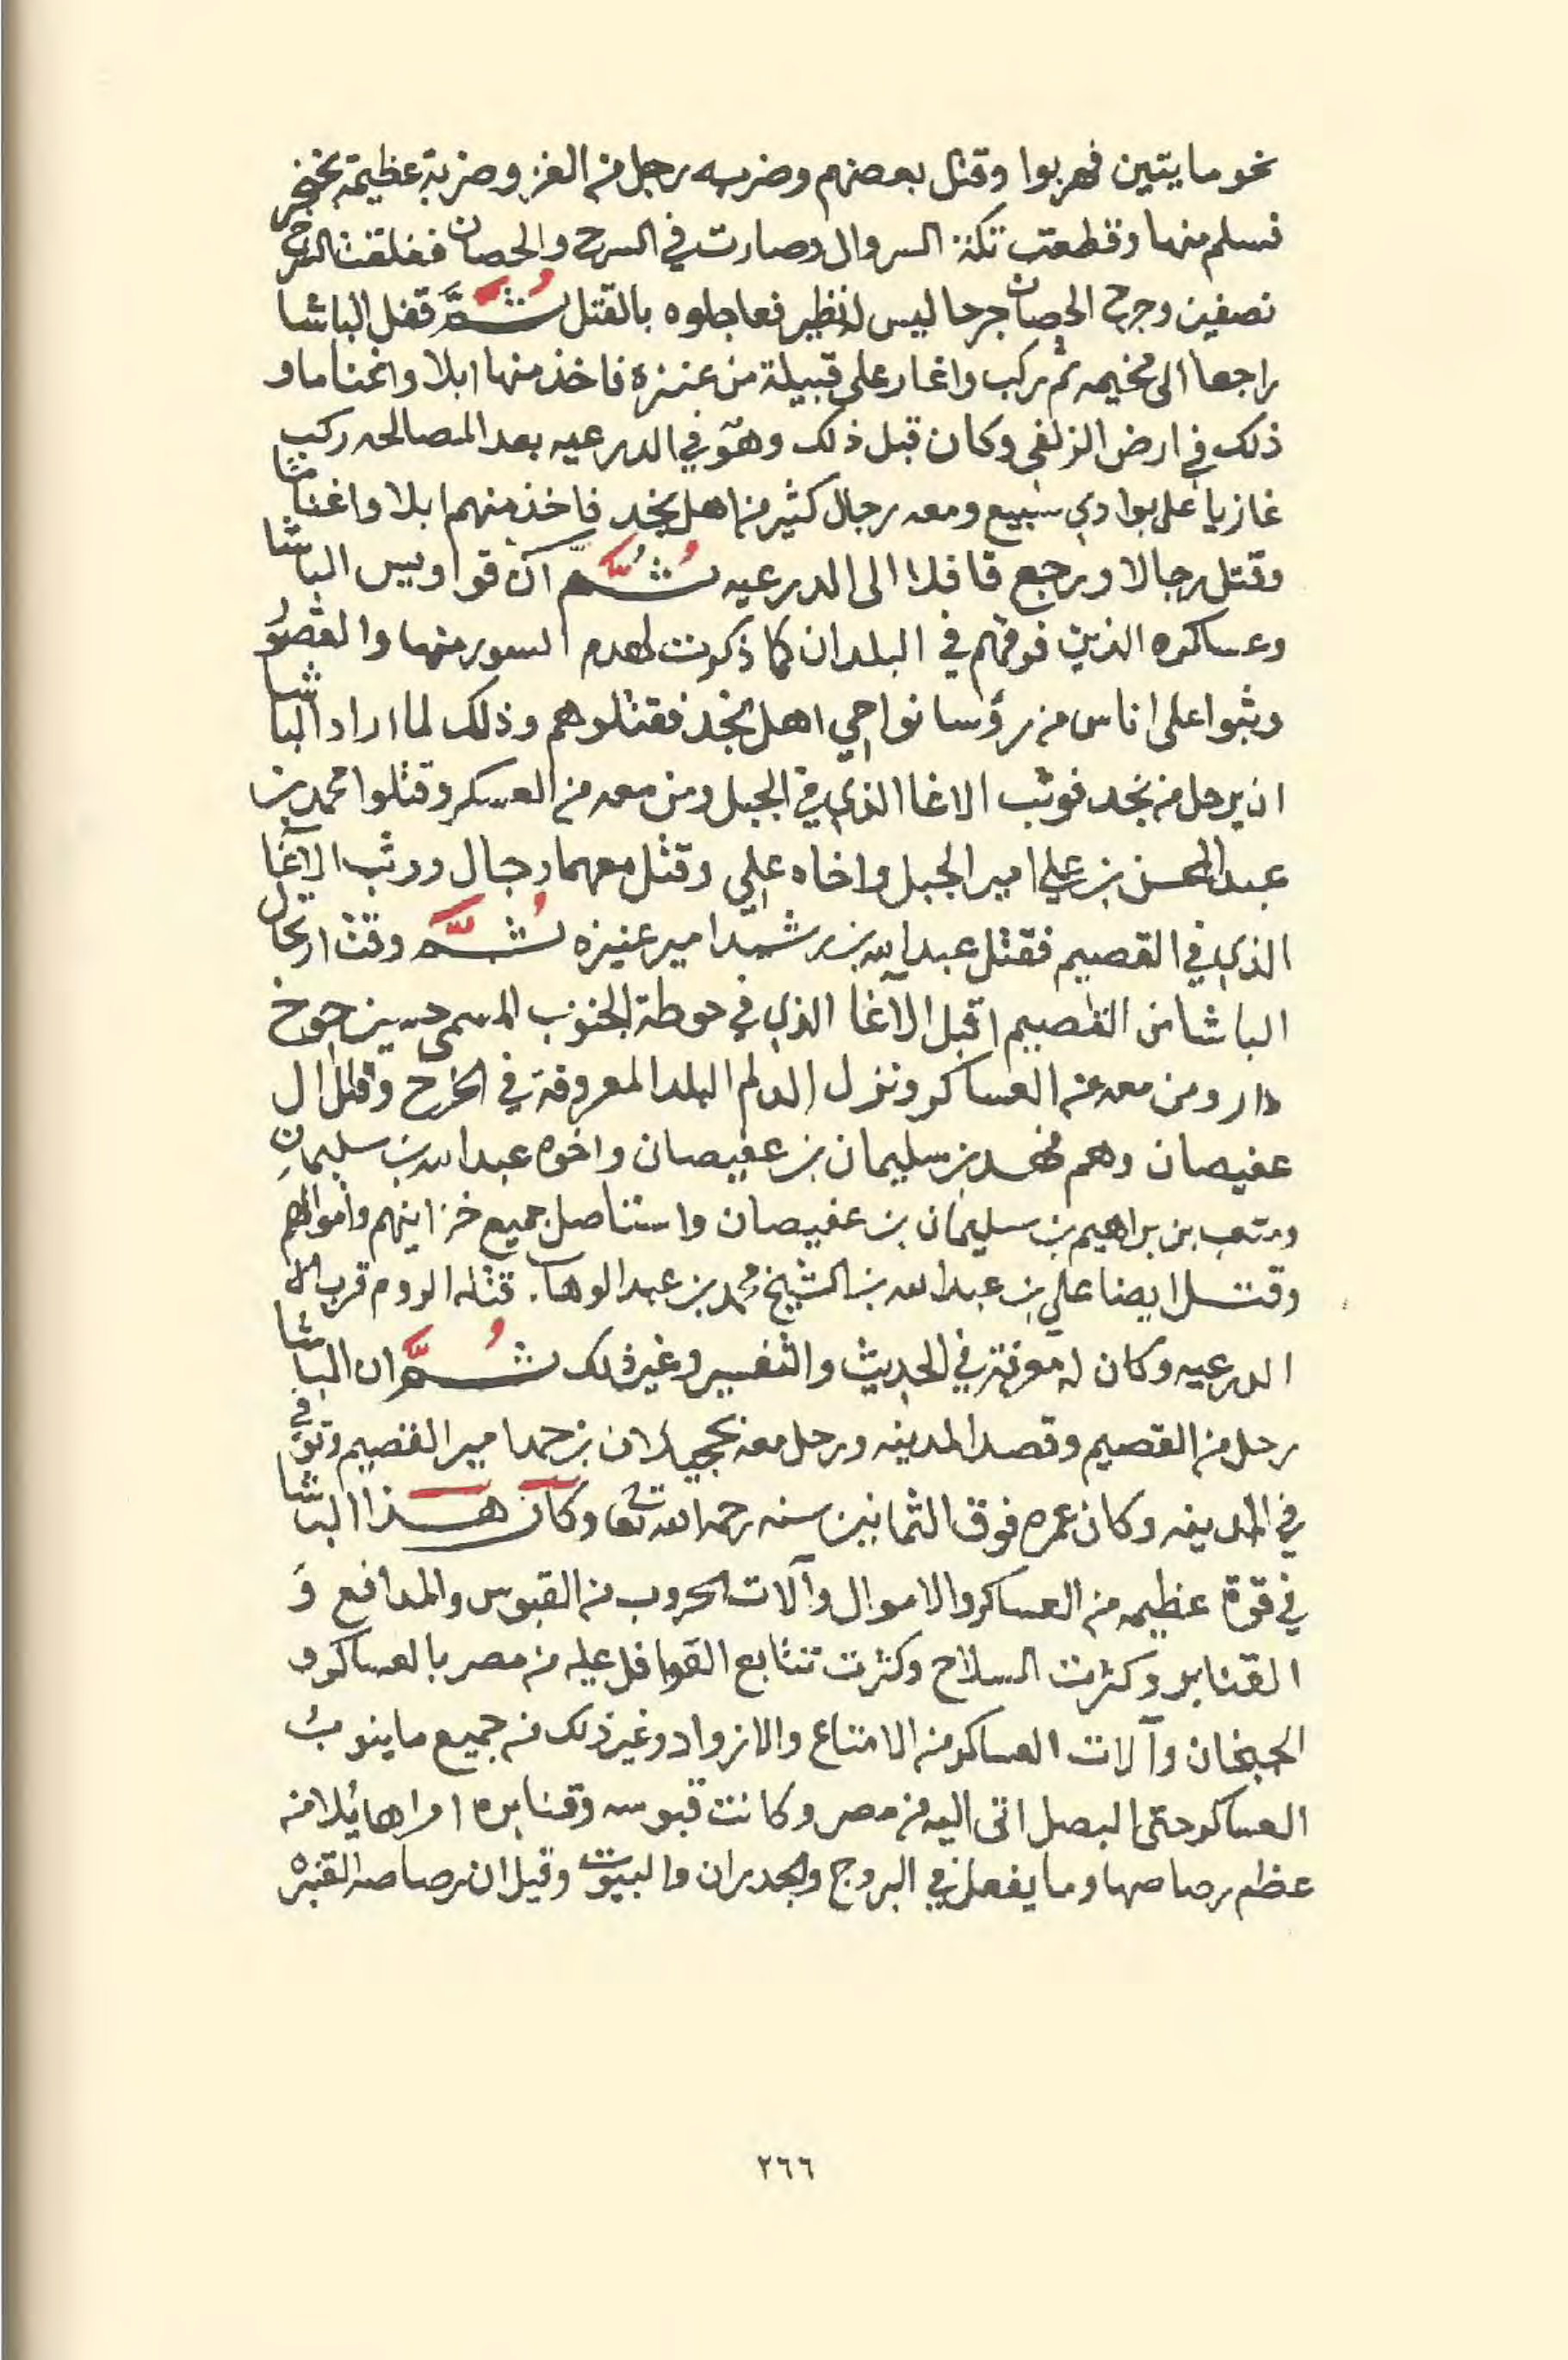 نحو مايتين فهربوا وقتل بعضهم وضربه رجل من الغزو ضربة عظيمة بخنجر
فسلم منها وقطعت تكة السروال وصارت في السرج والحصان ففلقت السرج
نصفين وجرح الحصان جرحا ليس له نظير فعاجلوه بالقتل ثُمَّ قفل الباشا
راجعا الى مخيمه ثم ركب واغار على قبيلة من عنزه فاخذ منها ابلا واغناما و
ذلك في ارض الزلفى وكان قبل ذلك وهو في الدرعيه بعد المصالحه ركب
غازيا على بوادي سبيع ومعه رجال كثير من اهل نجد فاخذ منهم ابلا واغناما
وقتل رجالا ورجع قافلا الى الدرعيه ثُمَّ ان قواويس الباشا
وعساكره الذين فرقهم في البلدان كما ذكرت لهدم السور منها والقصور
وثبوا على اناس من رؤسا نواحي اهل نجد فقتلوهم وذلك لما اراد الباشا
ان يرحل من نجد فوثب الاغا الذي في الجبل ومن معه من العسكر وقتلوا محمد بن
عبد المحسن بن علي امير الجبل واخاه علي وقتل معهما رجال ووثب الآغا
الذي في القصيم فقتل عبد الله بن رشيد امير عنيزه ثُمَّ وقت ارتحال
الباشا من القصيم اقبل الآغا الذي في حوطة الجنوب المسمى حسين جوخ
دار ومن معه من العساكر ونزل الدلم البلد المعروفة في الخرج وقتل ال
عفيصان وهم فهد بن سليمان بن عفيصان واخوه عبد الله بن سليمان
ومتعب بن براهيم بن سليمان بن عفيصان واستناصل جميع خزاينهم واموالهم
وقتل ايضا علي بن عبد الله بن الشيخ محمد بن عبد الوهاب قتله الروم قرب
الدرعيه وكان له معرفة في الحديث والتفسير وغير ذلك ثُمَّ ان الباشا
رحل من القصيم وقصد المدينه ورحل معه بحجيلان بن حمد امير القصيم وتوفي
في المدينه وكان عمره فوق الثمانين سنه رحمه الله تعا وكان هذا الباشا
في قوة عظيمه من العساكر والاموال وآلات الحروب من القبوس والمدافع وَ
القنابر وكثرت السلاح وكثرت تتابع القوافل عليه من مصر بالعساكر و
الجبخان وآلات العساكر من الامتاع والازواد وغير ذلك من جميع ما ينوب
العساكر حتى البصل اتى اليه من مصر وكانت قبوسه وقنابره امرا هائلا من
عظم رصاصها وما يفعل في البروج والجدران والبيوت وقيل ان رصاصه القنبره
٢٦٦